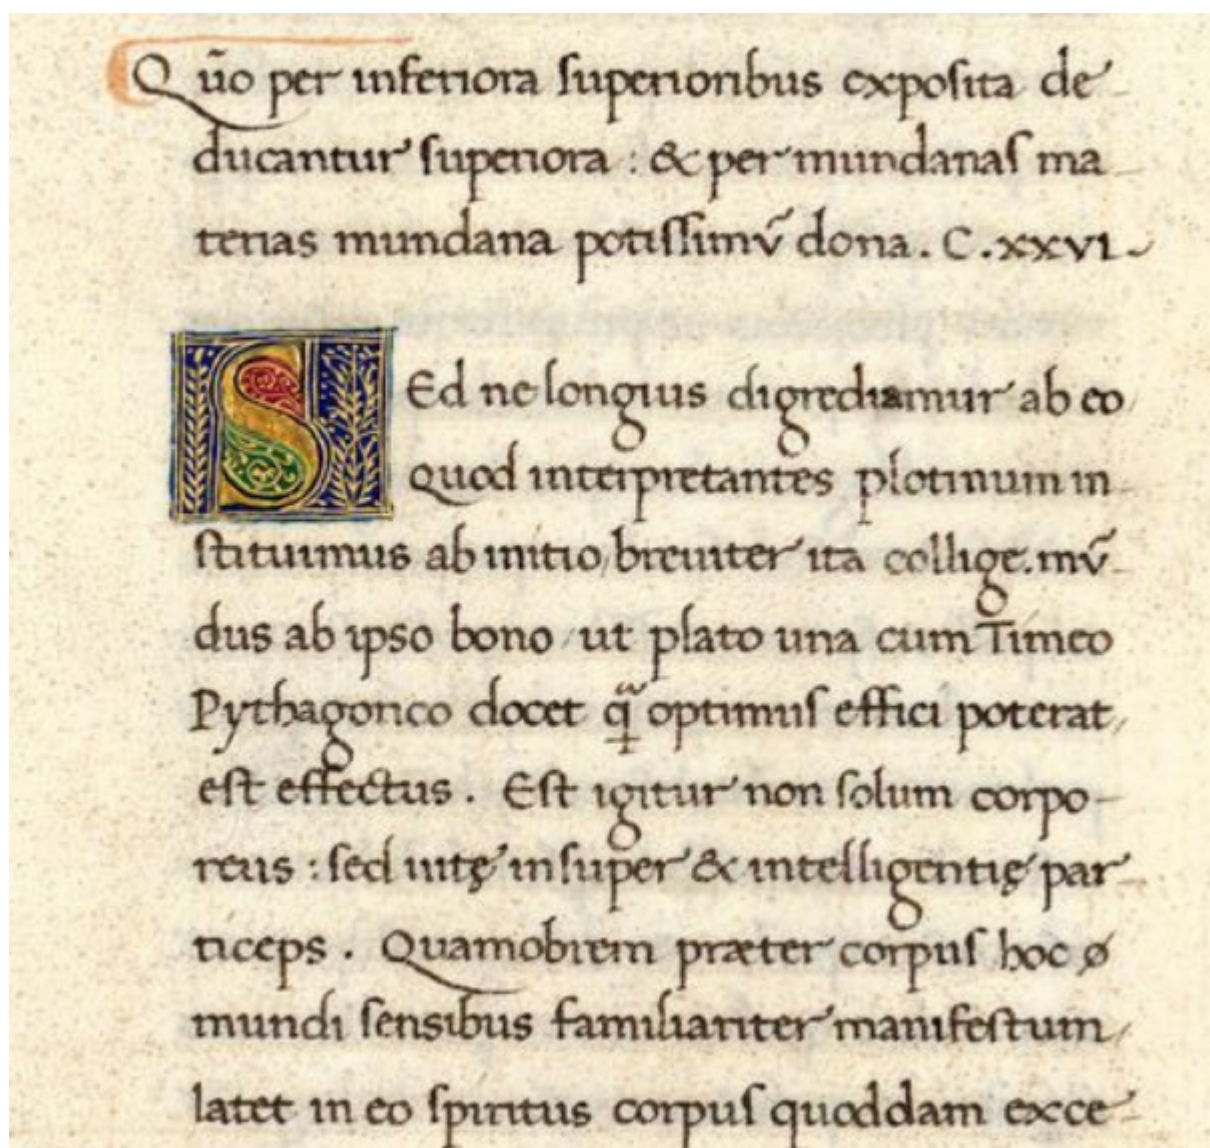 Quo᷑ per inferiora superioribus exposita de-
ducantur superiora : & per mundanas ma-
terias mundana potissimū dona. C.xxvi.
SEd ne longius digrediamur ab eo
quod interpretantes plotinum in-
stituimus ab initio, breuiter ita collige. mū-
dus ab ipso bono, ut plato una cum Timeo
Pythagorico docet q̃ optimus effici poterat,
est effectus. Est igitur non solum corpo-
reus : sed uitę insuper & intelligentię par-
ticeps. Quamobrem præter corpus hoc
mundi sensibus familiariter manifestum,
latet in eo spiritus corpus quoddam exce-